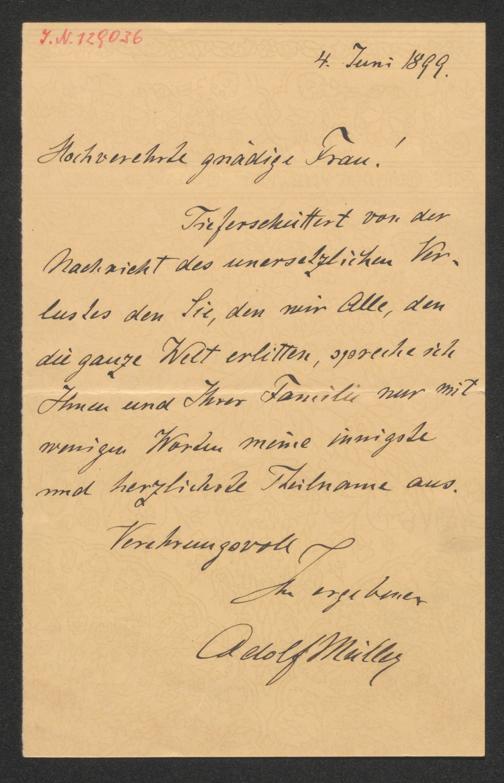 I.N. 129036
4. Juni 1899.
Hochverehrte gnädige Frau!
Tieferschüttert von der
Nachricht des unersetzlichen Ver-
lustes den Sie, den wir Alle, den
die ganze Welt erlitten, spreche ich
Ihnen und Ihrer Familie nur mit
wenigen Worten meine innigste
und herzlichste Theilname aus.
Verehrungsvoll
Ihr ergebener
Adolf Müller